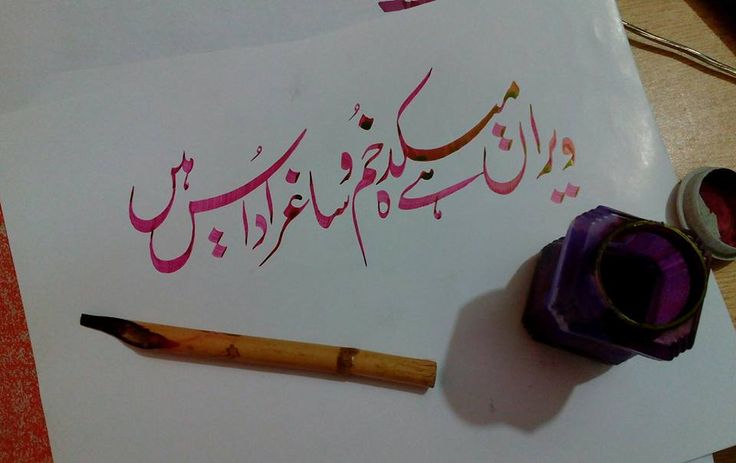 ویراں ہے میکدہ خُم و ساغر اداس ہیں